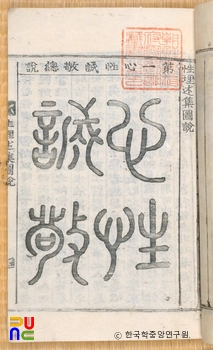 性理述集圖說
第一心性誠敬總說
心性
誠敬
© 한국학중앙연구원